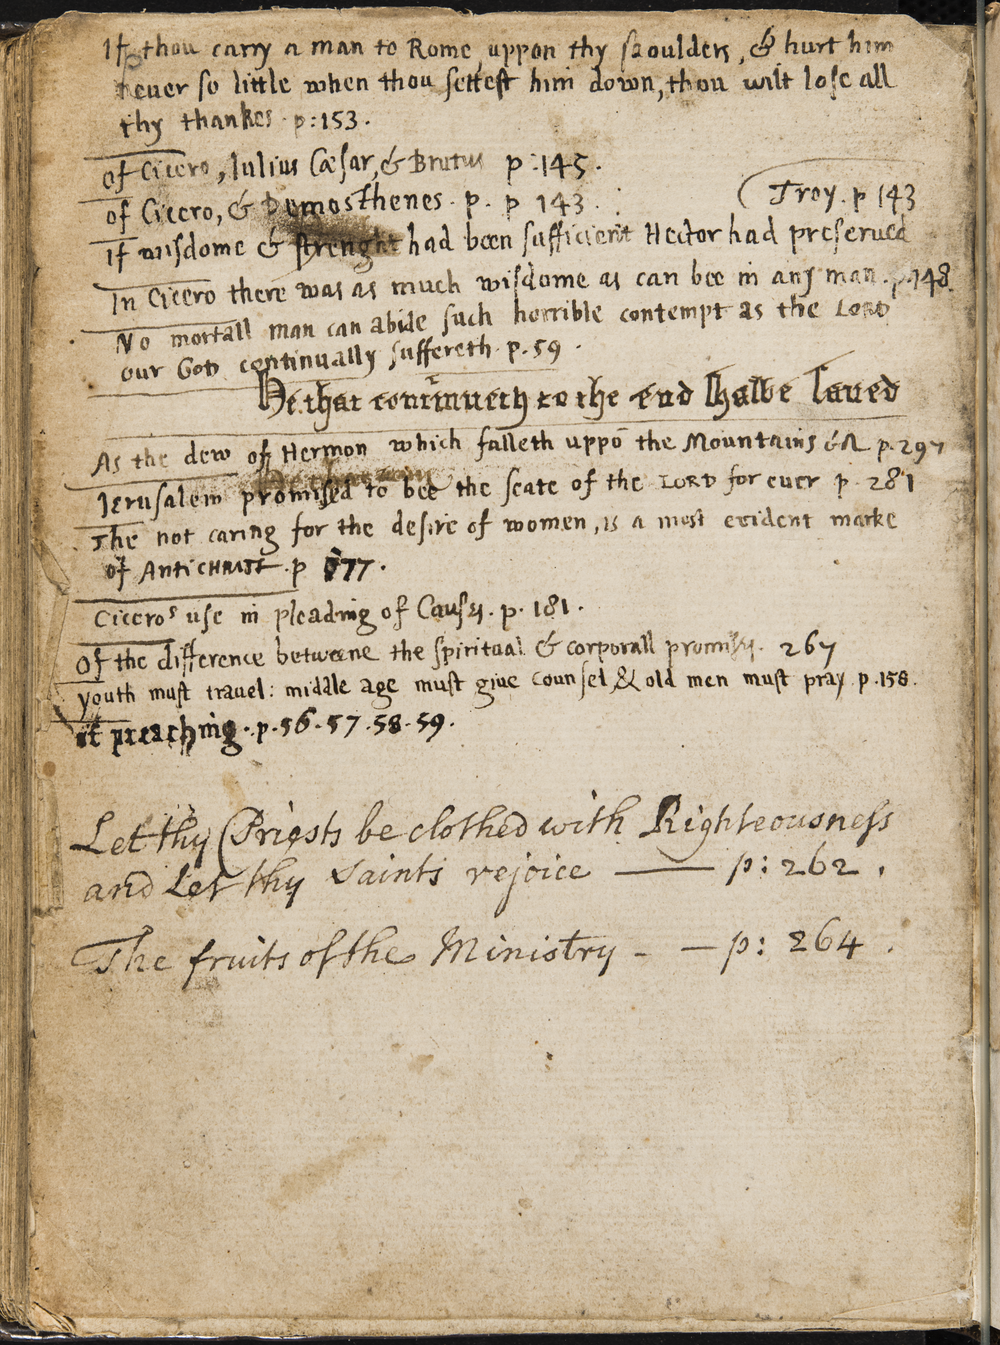 If thou carry a man to Rome uppon thy shoulders, & hurt him
neuer so little when thou settest him down, thou wilt lose all
thy thankes p:153.
of Cicero, Iulius Cæsar, & Brutus p:145.
of Cicero, & Demosthenes. p. p 143. (Troy. p 143
If wisdome & strenght had been sufficient Hector had preserued
In Cicero there was as much wisdome as can bee in any man. p.148.
No mortall man can abide such horrible contempt as the LORD
our GOD continually suffereth. p. 59.
He that continueth to the end shalbe saued
As the dew of Hermon which falleth uppō the Mountains &c. p. 297
Ierusalem promised to bee the seate of the LORD for euer p 281
The not caring for the desire of women, is a most evident marke
of AntiCHRIST. p 177.
Ciceros use in pleading of Causes. p. 181.
Of the difference betweene the spiritual & corporall promises. 267
youth must travel: middle age must give counsel, & old men must pray. p.158.
of preaching. p. 56. 57. 58. 59.
Let thy Priests be clothed with Righteousness
and Let thy Saints rejoice — p: 262.
The fruits of the Ministry - — p: 264.